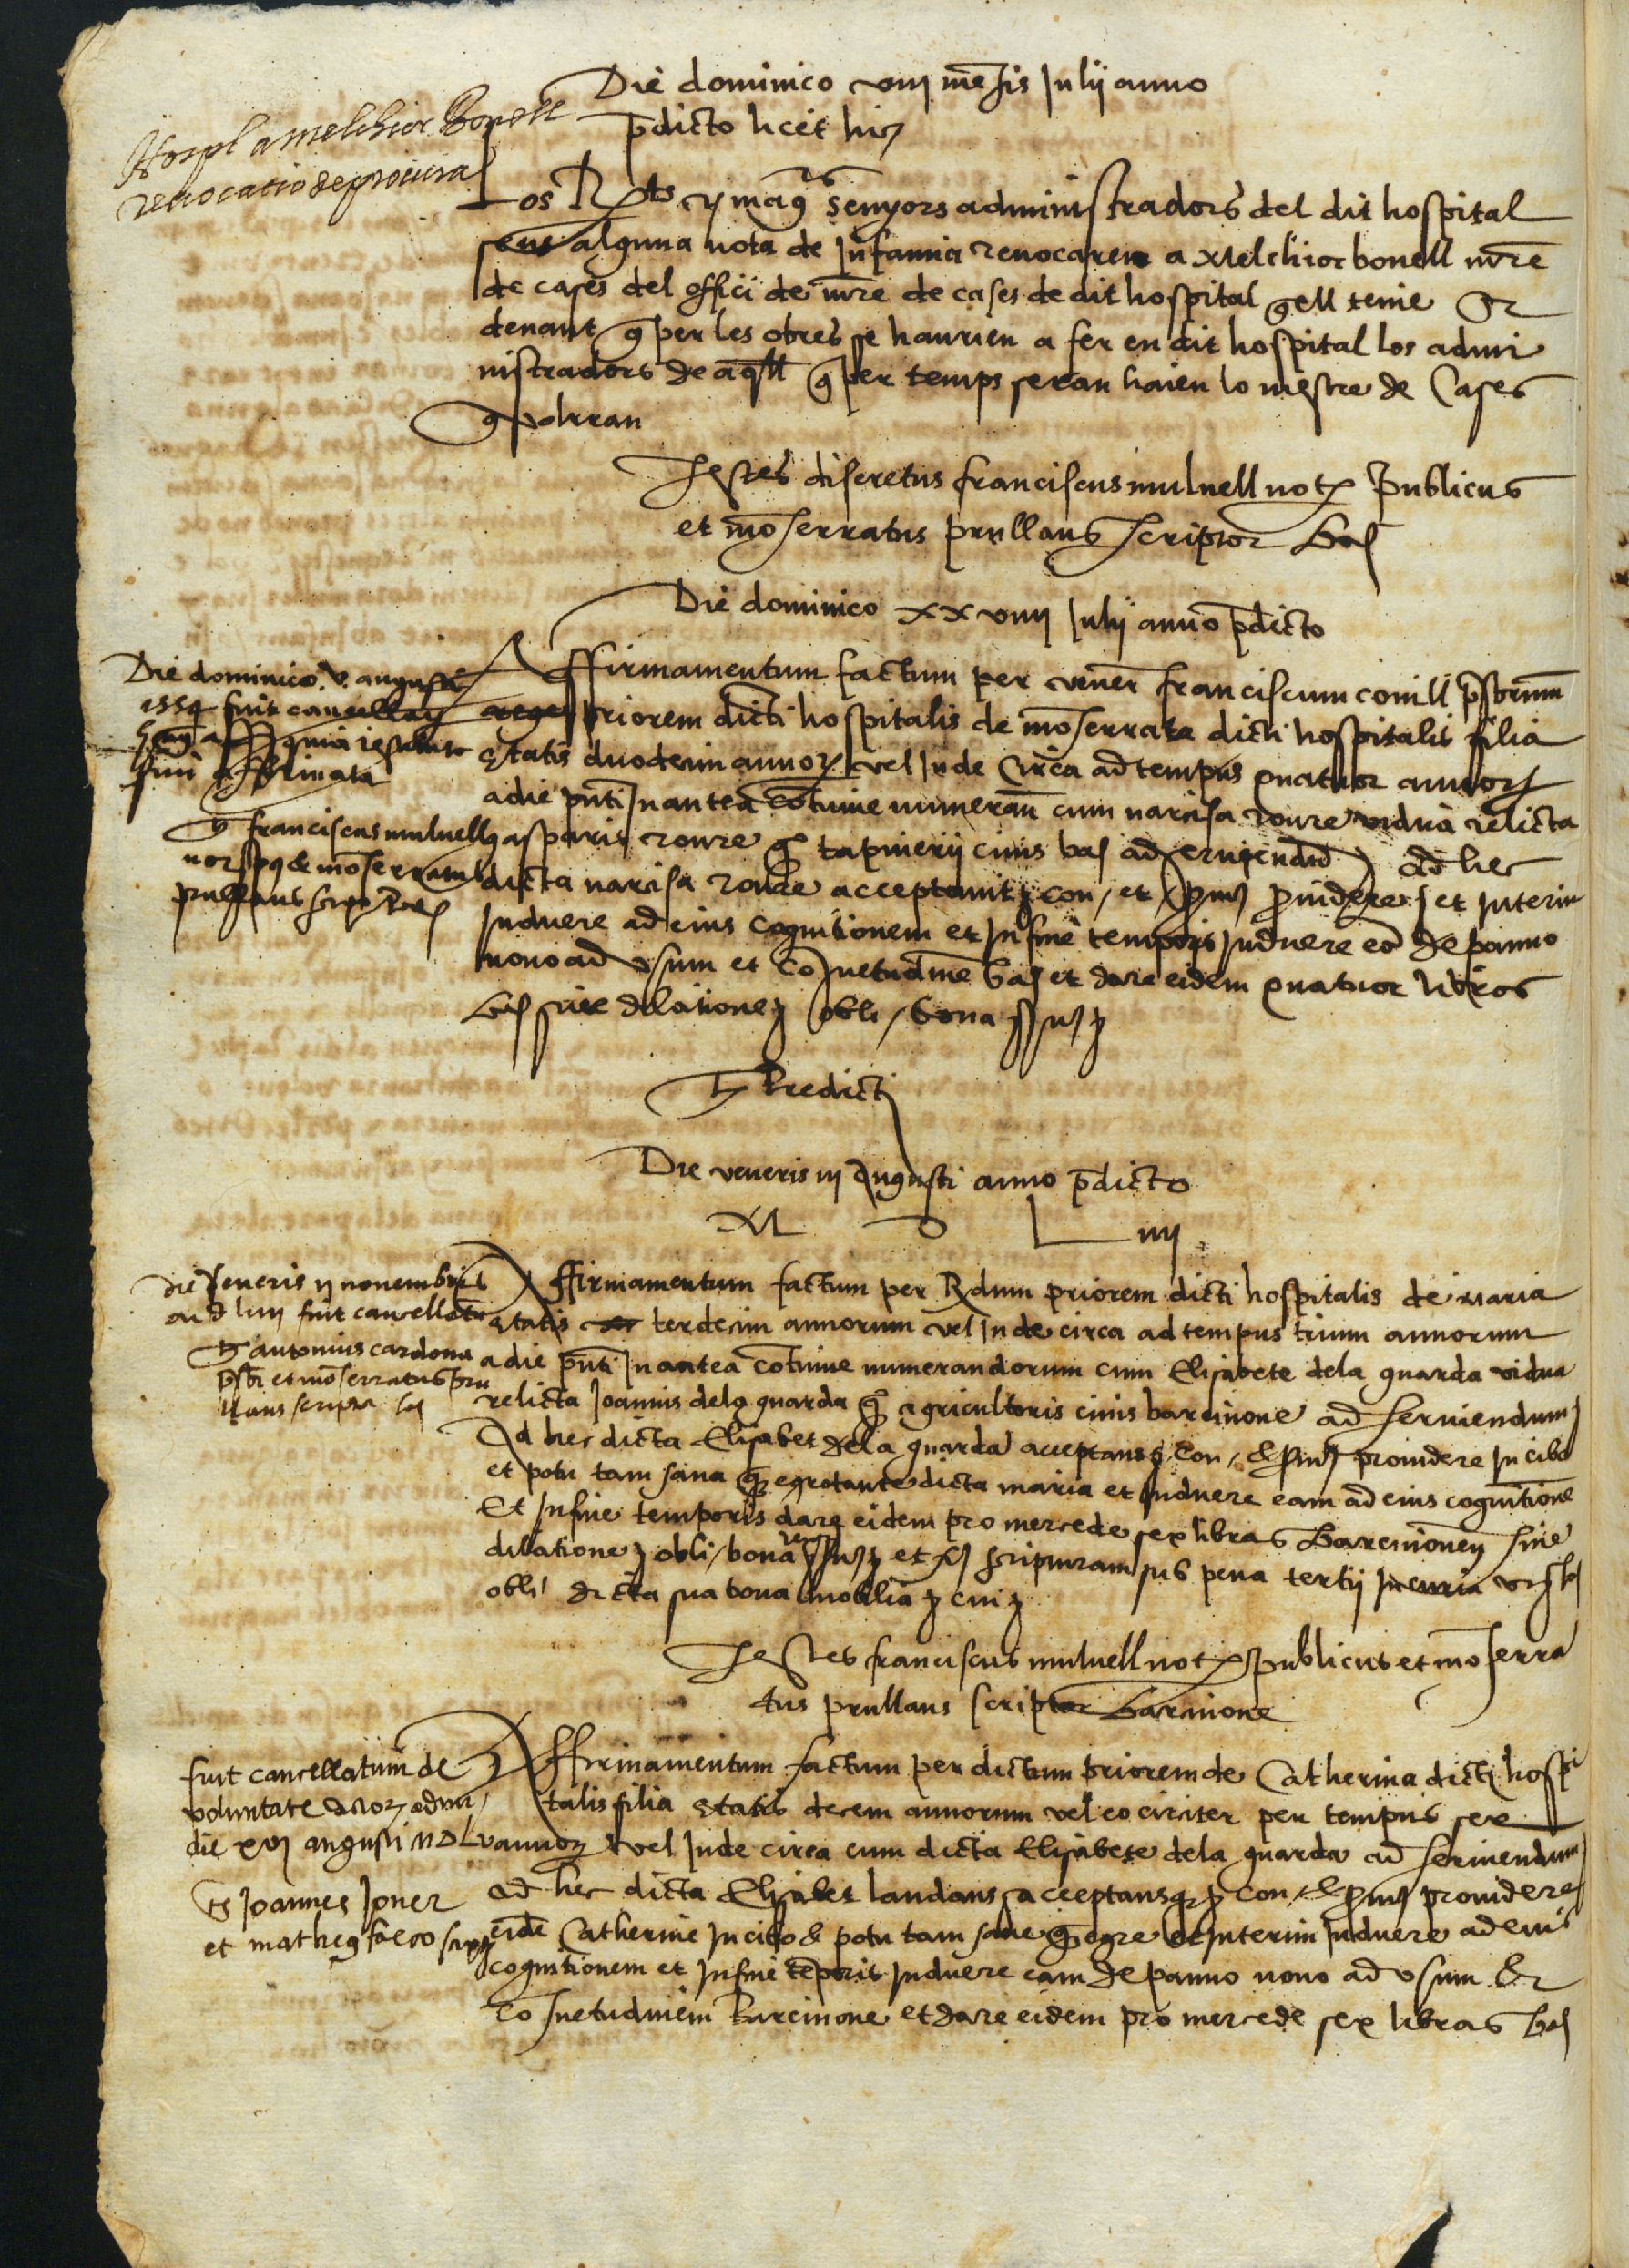 Die dominico viij mēsis Julij anno
p̄dicto
Hospl a melchior Bonell
revocatio de procura
Los Rts y magchs senyors administradors del dit hospital
sens alguna nota de Infamia revocaren a Melchior bonell mr̄e
de cases del offici de mr̄e de cases de dit hospital q̄ ell tenie Et
denant q̄ per les obres se haurien a fer en dit hospital los admi
nistradors de aq̄ll q̄ per temps seran haien lo mestre de Cases
q̄ volrran
Testes discretus franciscus mulnell notr publicus
et mōserratus prullans scriptor Bar
Die dominico xxviiij Julij anno p̄dicto
Die dominico v augusti
1554 fuit cancellatum
quia
fuit affirmata
Ts franciscus mulnell
not pus & mōserratus
prullans scriptor Bar
Affirmamentum factum per vener franciscum conill p̄sbrm̄
priorem dicti hospitalis de mōserrata dicti hospitalis filia
etatis duodecim annorum vel Inde Circa ad tempus quatuor annor
a die pn̄ti In antea cōtinue numeran̄ cum narcisa roure vidua relicta
gasparis roure q̄ tapinerii civis bar ad serviendum ad hec
dicta narcisa roure acceptavit con et promis providere et Interim
Induere ad eius cognitionem et In fine temporis Induere eā de panno
novo ad usum et Cōsuetudinē bar et dare eidem quatuor libras
Bar sine dilatione obli bona
Ts Predicti
Die veneris iij Augusti anno p̄dicto
M D L iiij
Die Veneris ij novembris
M D liiij fuit cancellatū
Ts antonius cardona
psbr et mōserratus pru
llans scriptor bar
Affirmamentum factum per Rdum priorem dicti hospitalis de maria
etatis terdecim annorum vel Inde circa ad tempus trium annorum
a die pn̄ti In antea cōtinue numerandorum cum Elisabete dela guarda vidua
relicta Joannis dela guarda q̄ agricultoris civis barcinone ad serviendum
Ad hec dicta Elisabet dela guarda acceptans con & promis providere In cibo
et potu tam sana q̄ egrotante dicta maria et Induere eam ad eius cognitione
Et In fine temporis dare eidem pro mercede sex libras Barcinonen sine
dilatione obli bona et scripturam sub pena tertij In curia
obli dicta sua bona mobilia
Testes franciscus mulnell notr publicus et mōserra
tus prullans scriptor Barcinone
fuit cancellatum de
voluntate dictor admi
die xvj augusti MDLv
Ts Joannes Joner
et matheus
Affirmamentum factum per dictum priorem de Catherina dicti hospi
talis filia etatis decem annorum vel eo circiter per tempus sex
annor vel Inde circa cum dicta Elisabete dela guarda ad serviendum
ad hec dicta Elisabet laudans acceptansq con & promis providere
eidē Catherine In cibo & potu tam sane q̄ egre et Interim Induere ad eius
cognitionem et In fine tēporis Induere eam de panno novo ad usum Et
Cōsuetudinem Barcinone et dare eidem pro mercede sex libras Bar